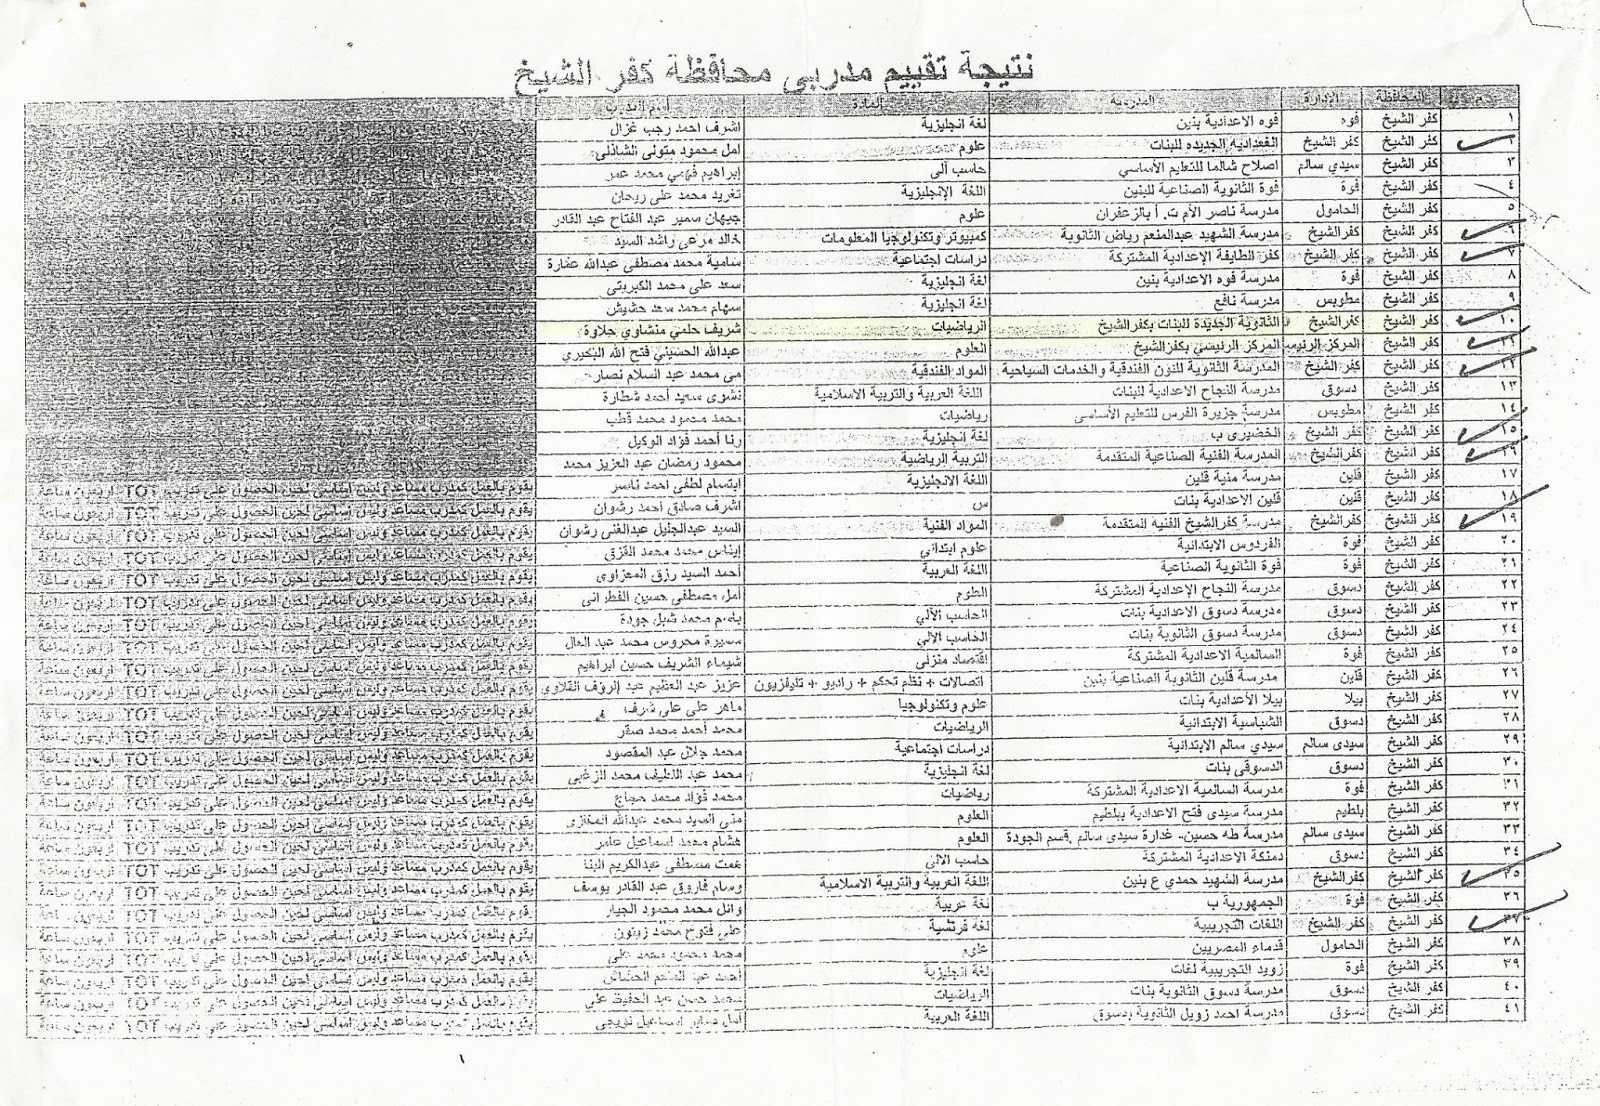 نتيجة تقييم مدربى محافظة كفر الشيخ
م المحافظة الإدارة المدرسة المادة اسم المدرب
١ كفر الشيخ فوه فوه الاعدادية بنين لغة انجليزية اشرف احمد رجب غزال
٢ كفر الشيخ كفر الشيخ الجديده للبنات علوم امل محمود متولى الشاذلى
٣ كفر الشيخ سيدي سالم اصلاح شالما للتعليم الأساسي حاسب آلى إبراهيم فهمي محمد عمر
٤ كفر الشيخ فوة فوة الثانوية الصناعية للبنين اللغة الإنجليزية تغريد محمد على
٥ كفر الشيخ الحامول مدرسة ناصر الأم ت. أ بالزعفران علوم جيهان سمير عبد الفتاح عبد القادر
٦ كفر الشيخ كفر الشيخ مدرسة الشهيد عبدالمنعم رياض الثانوية كمبيوتر وتكنولوجيا المعلومات خالد مرعى راشد السيد
٧ كفر الشيخ كفر الشيخ كفر الطايفة الإعدادية المشتركة دراسات اجتماعية سامية محمد مصطفى عبدالله عفارة
٨ كفر الشيخ فوة مدرسة فوه الاعدادية بنين لغة انجليزية سعد على محمد الكبريتى
٩ كفر الشيخ مطوبس مدرسة نافع لغة انجليزية سهام محمد سعد حشيش
١٠ كفر الشيخ كفر الشيخ الثانوية الجديدة للبنات بكفر الشيخ الرياضيات شريف حلمي منشاوي حلاوة
١١ كفر الشيخ المركز الرئيس المركز الرئيسي بكفر الشيخ العلوم عبدالله الحسيني فتح الله البحيري
١٢ كفر الشيخ كفر الشيخ المدرسة الثانوية الفندقية والخدمات السياحية المواد الفندقية مى محمد عبد السلام نصار
١٣ كفر الشيخ دسوق مدرسة النجاح الاعدادية للبنات اللغة العربية والتربية الاسلامية نشوى سعيد أحمد شطارة
١٤ كفر الشيخ مطوبس مدرسة جزيرة الفرس للتعليم الأساسى رياضيات محمد محمود محمد قطب
١٥ كفر الشيخ كفر الشيخ الخضيرى ب لغة انجليزية رنا أحمد فؤاد الوكيل
١٦ كفر الشيخ كفر الشيخ المدرسة الفنية الصناعية المتقدمة التربية الرياضية محمود رمضان عبد العزيز محمد
١٧ كفر الشيخ قلين مدرسة منية قلين اللغة الانجليزية ابتسام لطفى أحمد ناصر يقوم بالعمل كمدرب مساعد وليس اساسي لحين الحصول على تدريب TOT اربعون ساعة
١٨ كفر الشيخ قلين قلين الاعدادية بنات س اشرف صادق أحمد رشوان يقوم بالعمل كمدرب مساعد وليس اساسي لحين الحصول على تدريب TOT اربعون ساعة
١٩ كفر الشيخ كفر الشيخ مدرسة كفر الشيخ الفنية المتقدمة المواد الفنية السيد عبدالجليل عبدالغنى رشوان يقوم بالعمل كمدرب مساعد وليس اساسي لحين الحصول على تدريب TOT اربعون ساعة
٢٠ كفر الشيخ فوة الفردوس الابتدانية علوم ابتدائي إيناس محمد محمد القزق يقوم بالعمل كمدرب مساعد وليس اساسي لحين الحصول على تدريب TOT اربعون ساعة
٢١ كفر الشيخ فوة فوة الثانوية الصناعية اللغة العربية أحمد السيد رزق المعزاوى يقوم بالعمل كمدرب مساعد وليس اساسي لحين الحصول على تدريب TOT اربعون ساعة
٢٢ كفر الشيخ دسوق مدرسة النجاح الإعدادية المشتركة العلوم أمل مصطفى حسين يقوم بالعمل كمدرب مساعد وليس اساسي لحين الحصول على تدريب TOT اربعون ساعة
٢٣ كفر الشيخ دسوق مدرسة دسوق الاعدادية بنات الحاسب الألي محمد شبل جودة يقوم بالعمل كمدرب مساعد وليس اساسي لحين الحصول على تدريب TOT اربعون ساعة
٢٤ كفر الشيخ دسوق مدرسة دسوق الثانوية بنات الحاسب الالي سميرة محروس محمد عبد العال يقوم بالعمل كمدرب مساعد وليس اساسي لحين الحصول على تدريب TOT اربعون ساعة
٢٥ كفر الشيخ فوة السالمية الاعدادية المشتركة اقتصاد منزلى شيماء الشريف حسين ابراهيم يقوم بالعمل كمدرب مساعد وليس اساسي لحين الحصول على تدريب TOT اربعون ساعة
٢٦ كفر الشيخ قلين مدرسة قلين الثانوية الصناعية بنين اتصالات + نظم تحكم + راديو + تليفزيون عزيز عبد العظيم عبد الرؤف القلاوى يقوم بالعمل كمدرب مساعد وليس اساسي لحين الحصول على تدريب TOT اربعون ساعة
٢٧ كفر الشيخ بيلا بيلا الأعدادية بنات علوم وتكنولوجيا ماهر على على شرف يقوم بالعمل كمدرب مساعد وليس اساسي لحين الحصول على تدريب TOT اربعون ساعة
٢٨ كفر الشيخ دسوق الشباسية الابتدانية الرياضيات محمد أحمد محمد صقر يقوم بالعمل كمدرب مساعد وليس اساسي لحين الحصول على تدريب TOT اربعون ساعة
٢٩ كفر الشيخ سيدى سالم سيدي سالم الابتدانية دراسات اجتماعية محمد جلال عبد المقصود يقوم بالعمل كمدرب مساعد وليس اساسي لحين الحصول على تدريب TOT اربعون ساعة
٣٠ كفر الشيخ دسوق الدسوقى بنات لغة انجليزية محمد عبد اللطيف محمد الزغبي يقوم بالعمل كمدرب مساعد وليس اساسي لحين الحصول على تدريب TOT اربعون ساعة
٣١ كفر الشيخ فوة مدرسة السالمية الاعدادية المشتركة رياضيات محمد فؤاد محمد حجاج يقوم بالعمل كمدرب مساعد وليس اساسي لحين الحصول على تدريب TOT اربعون ساعة
٣٢ كفر الشيخ بلطيم مدرسة سيدى فتح الاعدادية ببلطيم العلوم منى السيد محمد عبدالله المغازى يقوم بالعمل كمدرب مساعد وليس اساسي لحين الحصول على تدريب TOT اربعون ساعة
٣٣ كفر الشيخ سيدى سالم مدرسة طه حسين- غدارة سيدى سالم قسم الجودة العلوم هشام محمد اسماعيل عامر يقوم بالعمل كمدرب مساعد وليس اساسي لحين الحصول على تدريب TOT اربعون ساعة
٣٤ كفر الشيخ دسوق دمنكة الإعدادية المشتركة حاسب الالي مصطفى عبدالكريم البنا يقوم بالعمل كمدرب مساعد وليس اساسي لحين الحصول على تدريب TOT اربعون ساعة
٣٥ كفر الشيخ كفر الشيخ مدرسة الشهيد حمدي ع بنين اللغة العربية والتربية الاسلامية وسام فاروق عبد القادر يوسف يقوم بالعمل كمدرب مساعد وليس اساسي لحين الحصول على تدريب TOT اربعون ساعة
٣٦ كفر الشيخ فوة الجمهورية ب لغة عربية وائل محمد محمود الجيار يقوم بالعمل كمدرب مساعد وليس اساسي لحين الحصول على تدريب TOT اربعون ساعة
٣٧ كفر الشيخ كفر الشيخ اللغات التجريبية لغة فرنسية على فتوح محمد زيتون يقوم بالعمل كمدرب مساعد وليس اساسي لحين الحصول على تدريب TOT اربعون ساعة
٣٨ كفر الشيخ الحامول قدماء المصريين علوم محمد محمود محمد على يقوم بالعمل كمدرب مساعد وليس اساسي لحين الحصول على تدريب TOT اربعون ساعة
٣٩ كفر الشيخ فوة زويد التجريبية لغات لغة إنجليزية أحمد عبد المنعم يقوم بالعمل كمدرب مساعد وليس اساسي لحين الحصول على تدريب TOT اربعون ساعة
٤٠ كفر الشيخ دسوق مدرسة دسوق الثانوية بنات الرياضيات محمد حسن عبد الحفيظ على يقوم بالعمل كمدرب مساعد وليس اساسي لحين الحصول على تدريب TOT اربعون ساعة
٤١ كفر الشيخ دسوق مدرسة احمد زويل الثانوية بدسوق اللغة العربية أمل صابر اسماعيل يقوم بالعمل كمدرب مساعد وليس اساسي لحين الحصول على تدريب TOT اربعون ساعة
١